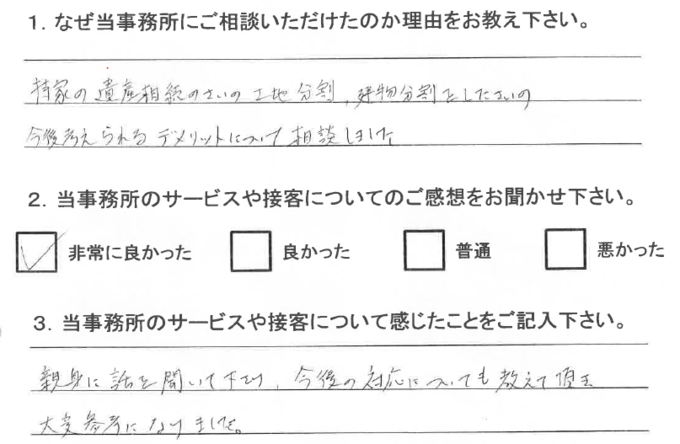 1. なぜ当事務所にご相談いただけたのか理由をお教え下さい。
持家の遺産相続のさいの土地分割、建物分割をしたさいの
今後考えられるデメリットについて相談しました
2. 当事務所のサービスや接客についてのご感想をお聞かせ下さい。
非常に良かった 良かった 普通 悪かった
3. 当事務所のサービスや接客について感じたことをご記入下さい。
親身に話を聞いて下さり、今後の対応についても教えて頂き
大変参考になりました。